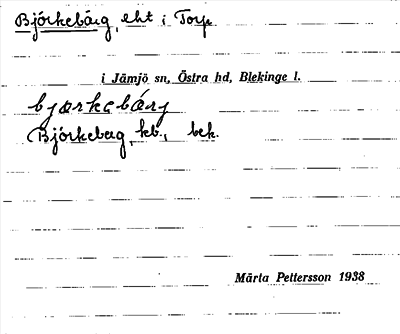 Björkebärg, eht i Torp
i Jämjö sn, Östra hd, Blekinge l.
bjærkebárj
Björkeberg, kb., bek.
Märta Pettersson 1938